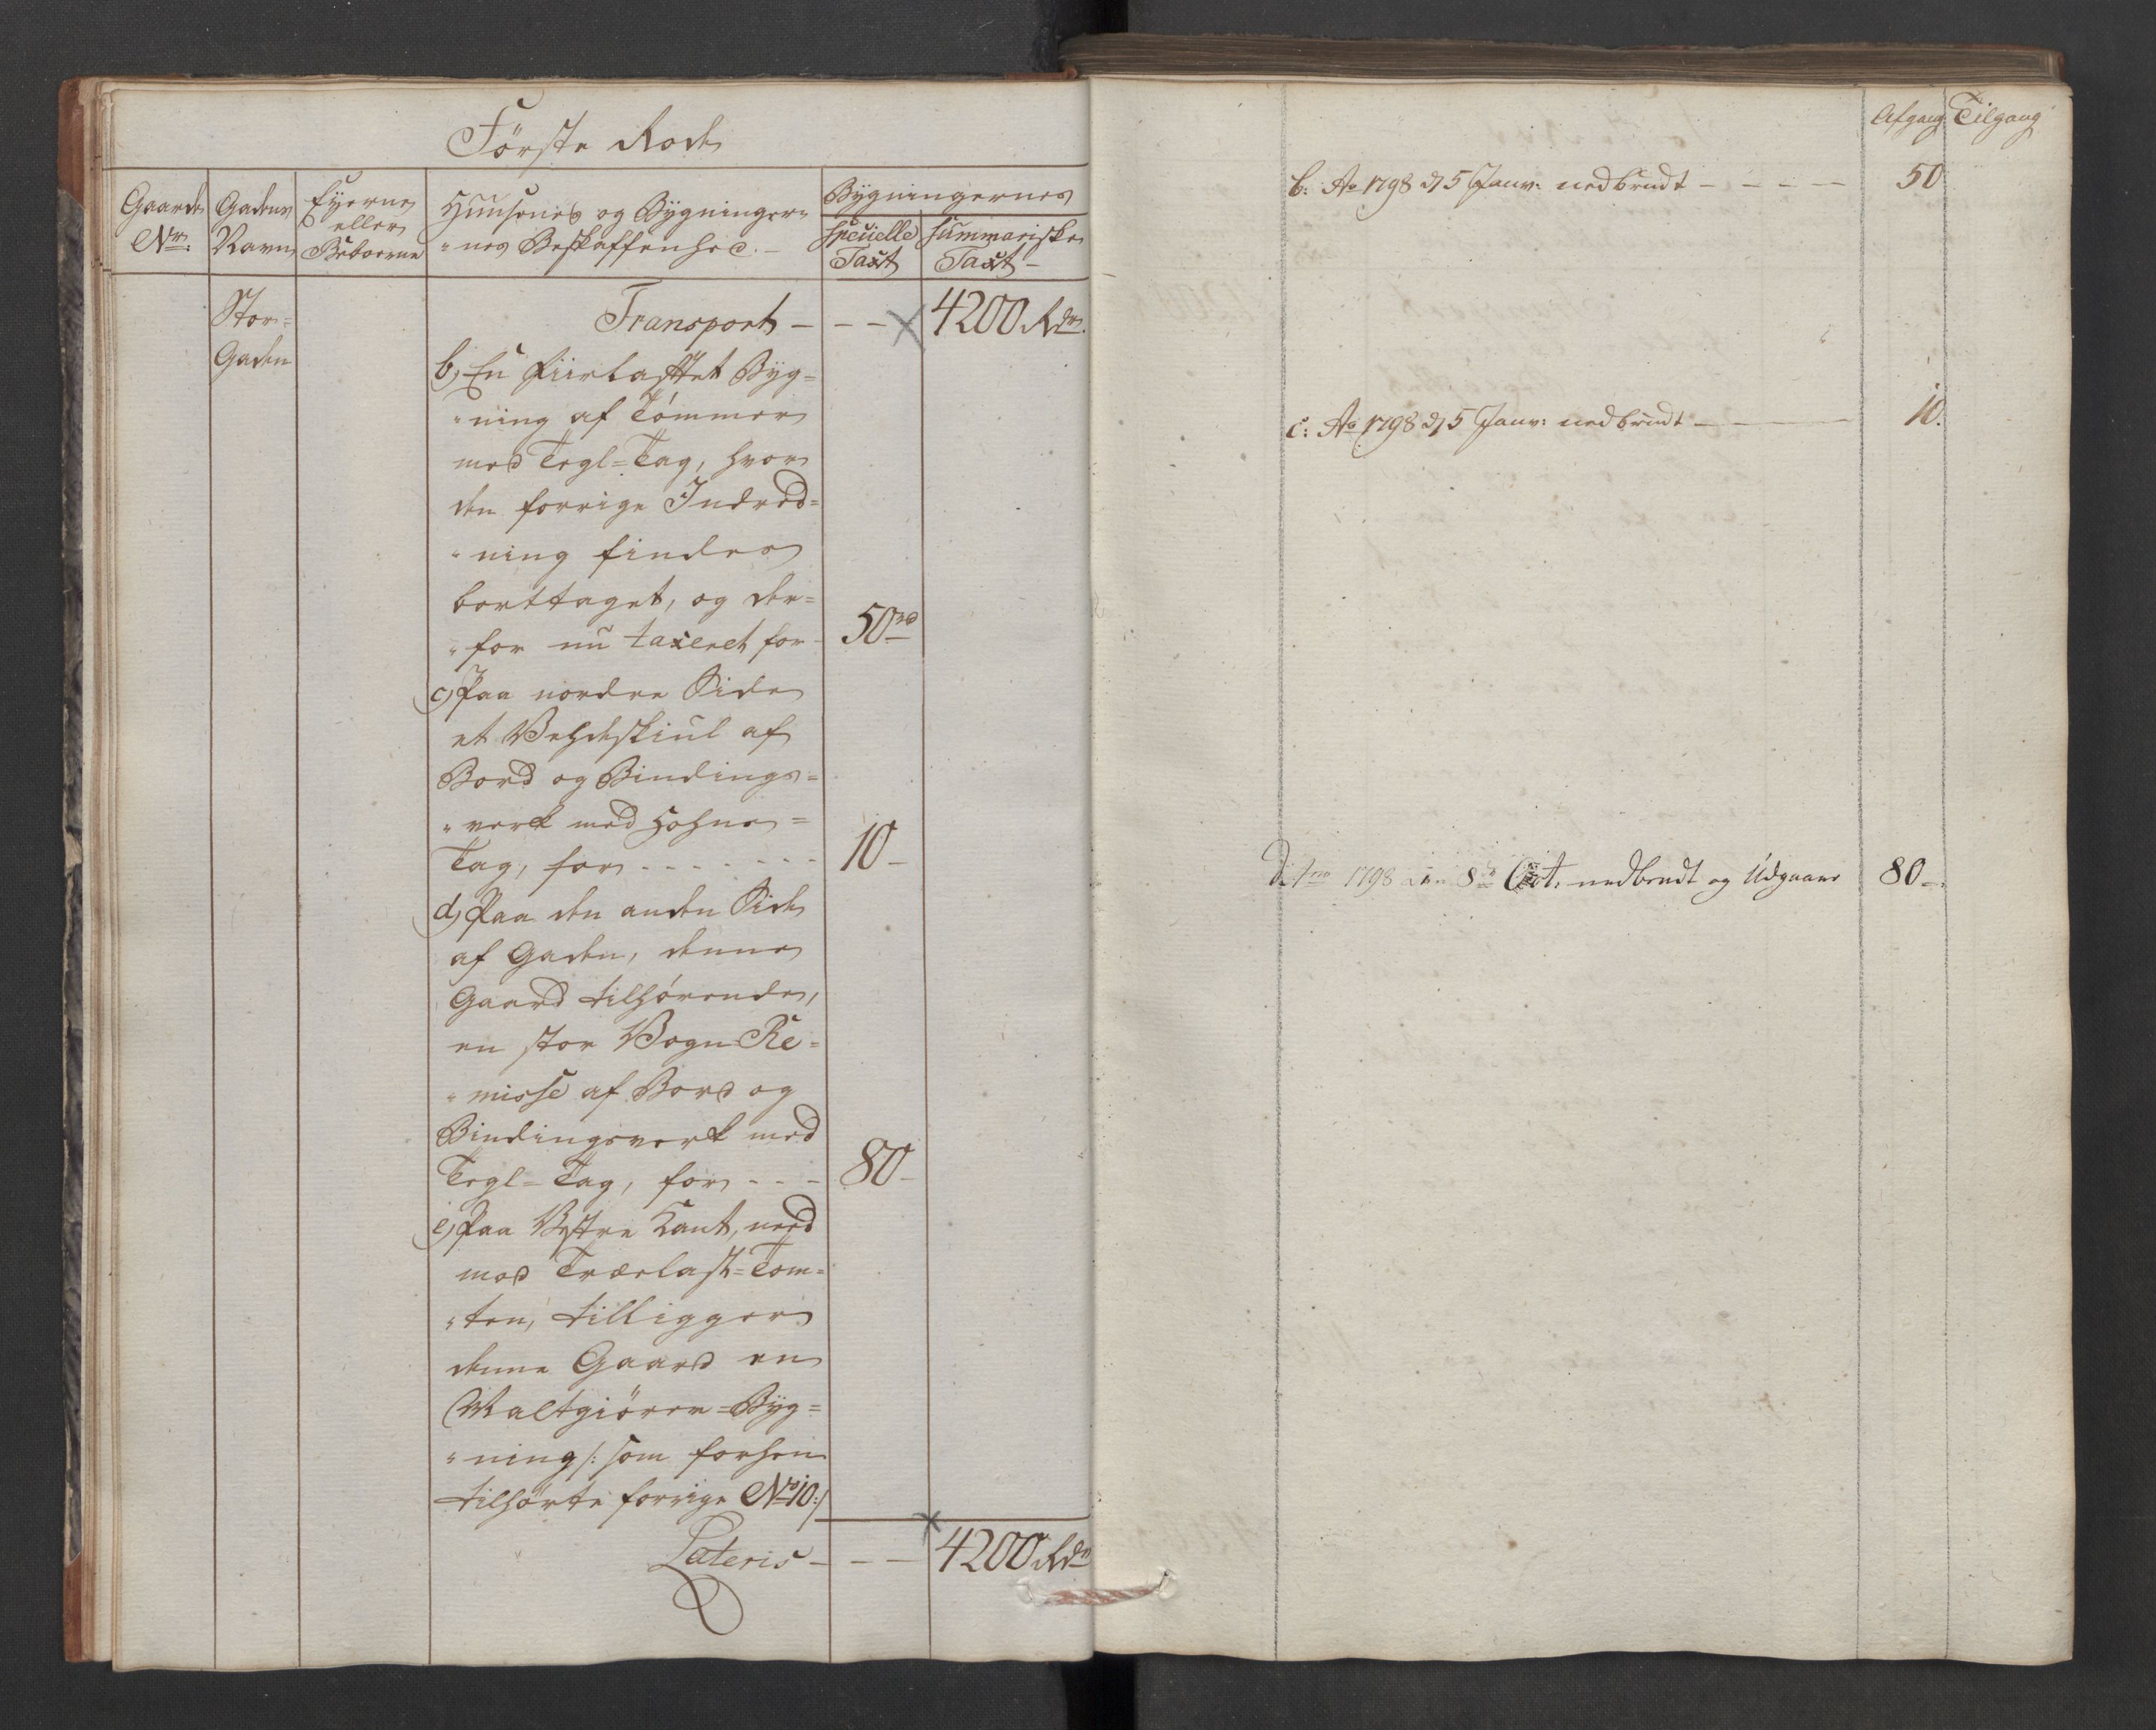 Første Rode
Gaardens Gadens Eyerne Huusenes og Bygninger= Bygningernes
eller
Nr: Navn Beboerne "nes Beskaffenhed. — specielle summariske
Taxt Taxt —
Stor= Transport — — — 4200 Rdr.
Gaden
b, En Fiirlafttet Byg=
"ning af Tømmer
med Tegl=Tag, hvor
den forrige Indred=
"ning findes
borttaget, og der=
"for nu taxeret for — 50 rd
c, Paa nordre Side
et Vehdeskiul af
Bord og Bindings=
"verk med Hohne=
Tag, for - - - - - - - 10 —
d, Paa den anden Side
af Gaden, denne
Gaard tilhørende,
en stor Vogn Re=
"misse af Bord og
Bindingsverk med
Tegl=Tag, for - - - 80 —
e, Paa Vestre Kant, ned
mod Trælast=Tom=
"ten, tilligger
denne Gaard en
Maltgiører=Byg=
"ning /: som forhen
tilhørte forrige No 10:/
Lateris — — — 4200 Rdr
Afgang Tilgang
b: Ao 1798 d 5 Janv: nedbrudt — — — — 50
c: Ao 1798 d 5 Janv: nedbrudt — — — 10.
d: Ao 1798 den 8de Oct. nedbrudt og Udgaaer 80 —